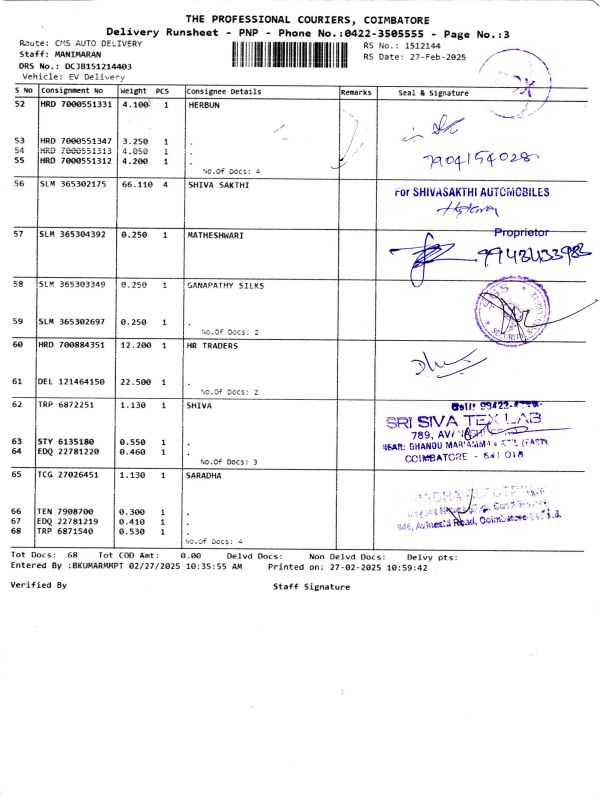 THE PROFESSIONAL COURIERS, COIMBATORE
Delivery Runsheet - PNP - Phone No.:0422-3505555 - Page No.:3
Route: CMS AUTO DELIVERY
RS No.: 1512144
Staff: MANIMARAN
RS Date: 27-Feb-2025
DRS No.: DCJB151214403
Vehicle: EV Delivery
S No Consignment No Weight PCS Consignee Details Remarks Seal & Signature
52 HRD 7000551331 4.100 1 HERBUN
53 HRD 7000551347 3.250 1 .
54 HRD 7000551313 4.050 1 .
55 HRD 7000551312 4.200 1 .
7904154028
No.Of Docs: 4
56 SLM 365302175 66.110 4 SHIVA SAKTHI
For SHIVASAKTHI AUTOMOBILES
Proprietor
57 SLM 365304392 0.250 1 MATHESHWARI
58 SLM 365303349 0.250 1 GANAPATHY SILKS
59 SLM 365302697 0.250 1 .
No.Of Docs: 2
60 HRD 700884351 12.200 1 HR TRADERS
61 DEL 121464150 22.500 1 .
No.Of Docs: 2
62 TRP 6872251 1.130 1 SHIVA
SRI SIVA TEX LAB
63 STY 6135180 0.550 1 .
64 EDQ 22781220 0.460 1 .
COIMBATORE - 641 018
No.Of Docs: 3
65 TCG 27026451 1.130 1 SARADHA
66 TEN 7908700 0.300 1 .
67 EDQ 22781219 0.410 1 .
68 TRP 6871540 0.530 1 .
946, Avinashi Road, Coimbatore
No.Of Docs: 4
Tot Docs: 68 Tot COD Amt: 0.00 Delvd Docs: Non Delvd Docs: Delvy pts:
Entered By :BKUMARMMPT 02/27/2025 10:35:55 AM Printed on: 27-02-2025 10:59:42
Verified By Staff Signature